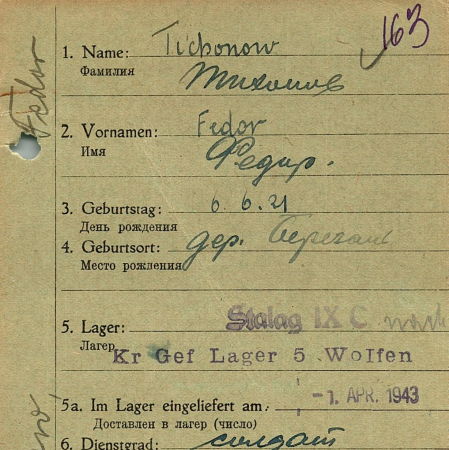 163
Fedor
1. Name: Tichonow
Фамилия Тихонов
2. Vornamen: Fedor
Имя Федир.
3. Geburtstag: 6.6.21
День рождения
4. Geburtsort: дер.
Место рождения
5. Lager: Stalag IX C
Лагерь
Kr Gef Lager 5 Wolfen
-1. APR. 1943
5a. Im Lager eingeliefert am:
Доставлен в лагерь (число)
6. Dienstgrad: солдат